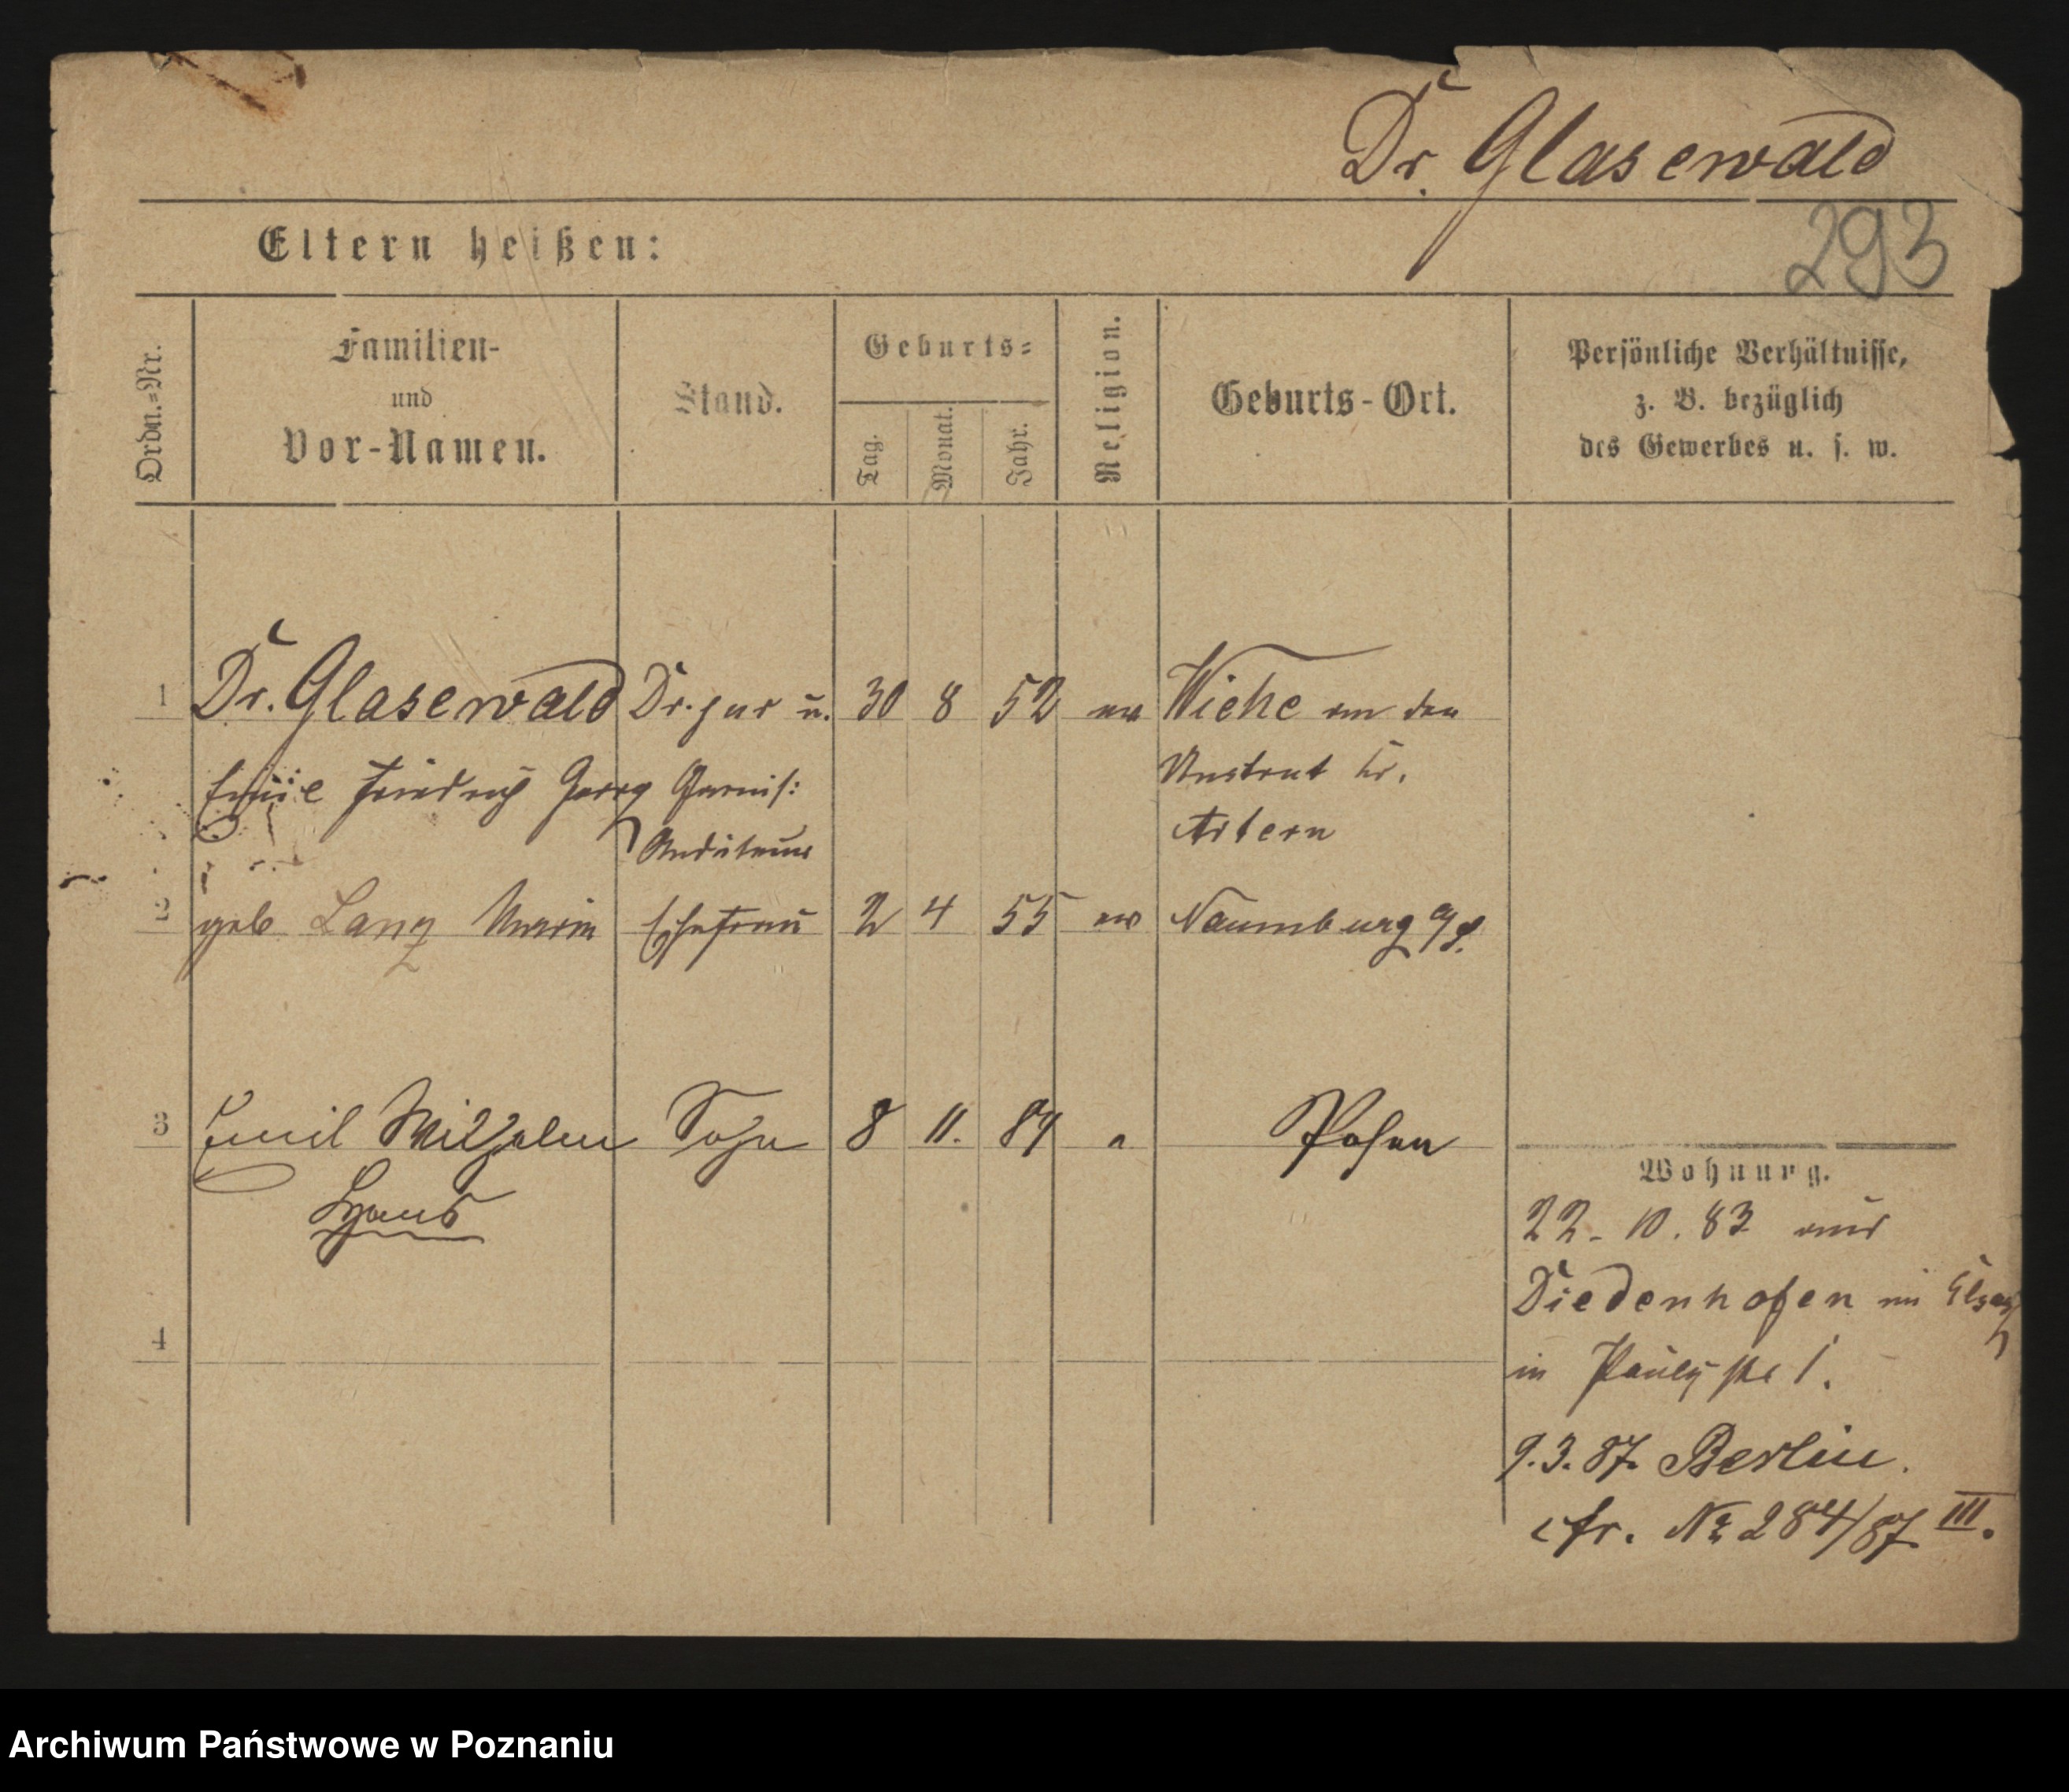 Dr. Glasewald
293
Eltern heißen:
Ordn.=Nr.
Familien-
und
Vor-Namen.
Stand.
Geburts=
Tag.
Monat.
Jahr.
Religion.
Geburts-Ort.
Persönliche Verhältnisse,
z. B. bezüglich
des Gewerbes u. s. w.
1 Dr. Glasewald Dr. jur u. 30 8 52 ev Wiehe an der
Emil Friedrich Georg Garnis: Unstrut Kr.
Auditeur Artern
2 geb Lang Maria Ehefrau 2 4 55 ev Naumburg a/S.
3 Emil Wilhelm Sohn 8 11. 84 " Posen
Hans
4
Wohnung.
22. 10. 83 aus
Diedenhofen im Elsaß
in Paulystr 1.
9.3.87. Berlin.
cfr. No 284/87 III.
Archiwum Państwowe w Poznaniu